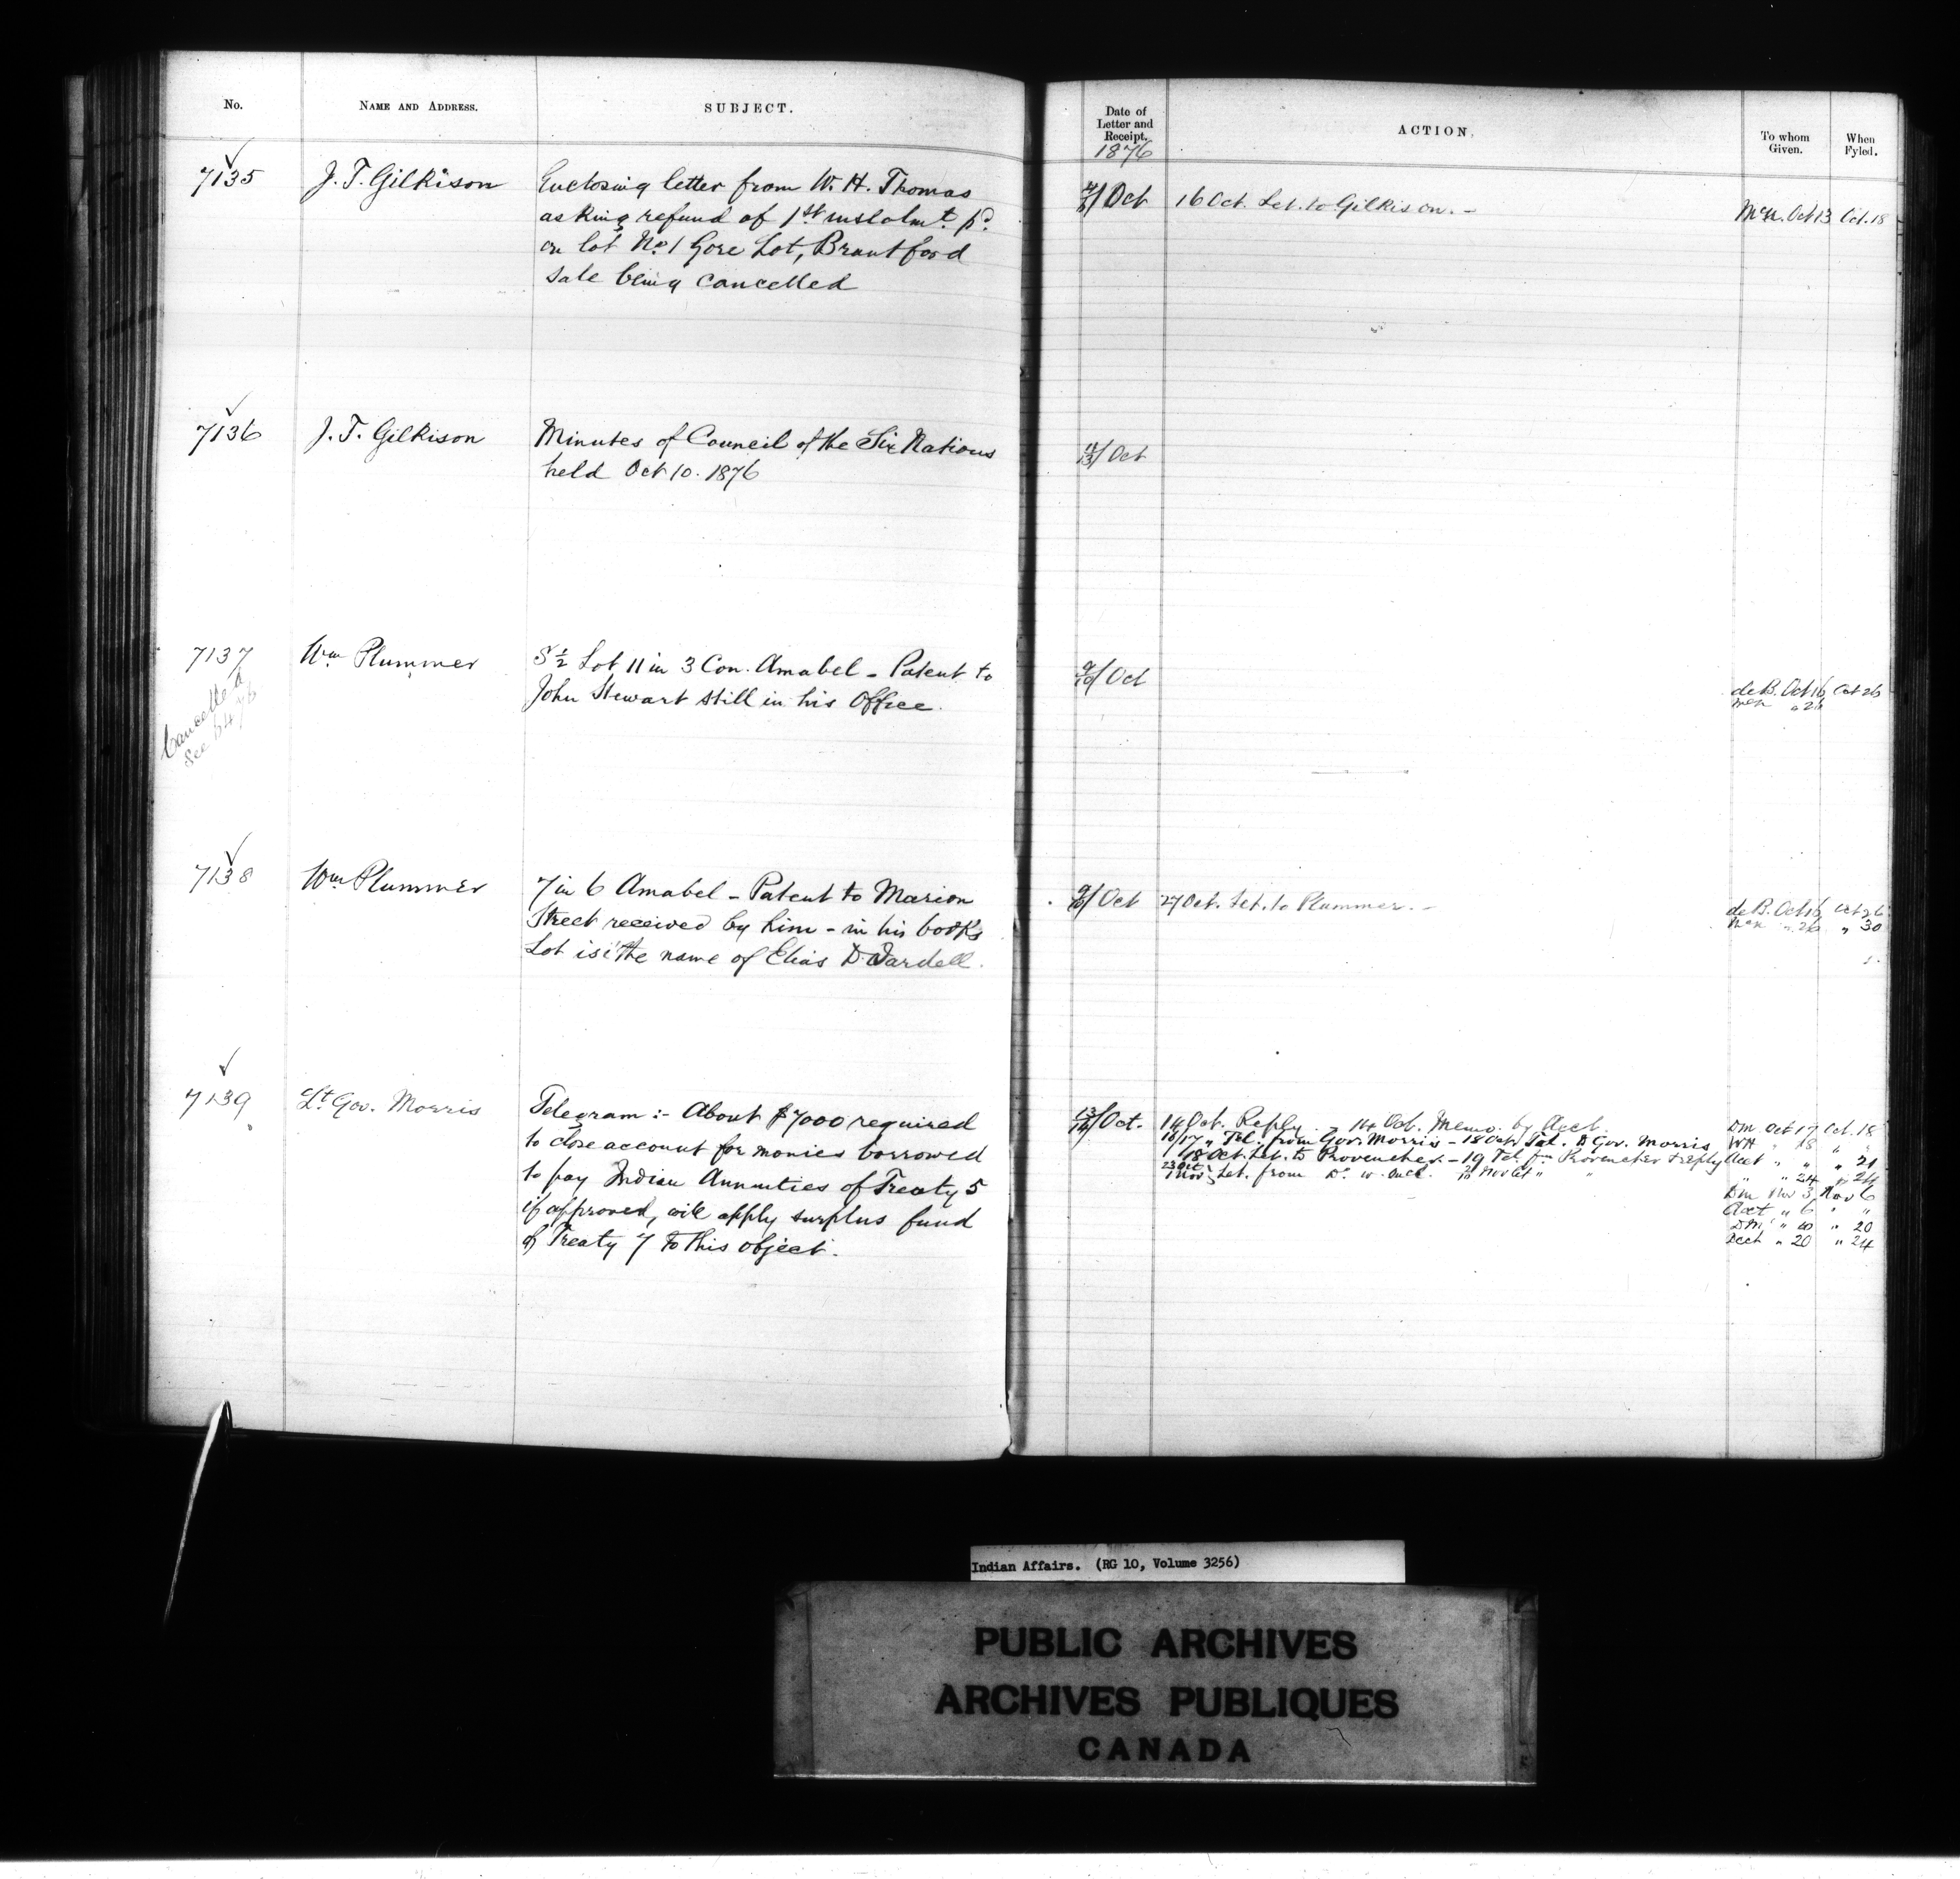 No.
NAME AND ADDRESS.
SUBJECT.
7135
J. T. Gilkison
Enclosing letter from W. H. Thomas
asking refund of 1st instalmt. pd.
on lot No. 1 Gore Lot, Brantford
sale being cancelled
7136
J. T. Gilkison
Minutes of Council of the Six Nations
held Oct 10. 1876
7137
Cancelled
See 6476
Wm Plummer
S ½ Lot 11 in 3 Con. Amabel - Patent to
John Stewart still in his Office.
7138
Wm Plummer
7 in 6 Amabel - Patent to Marion
Street received by him - in his books
Lot is i the name of Elias D. Wardell.
7139
Lt. Gov. Morris
Telegram :- About $7000 required
to close account for monies borrowed
to pay Indian Annuities of Treaty 5
if approved, will apply surplus fund
of Treaty 7 to this object.
Date of
Letter and
Receipt.
1876
ACTION.
To whom
Given.
When
Fyled.
Oct
16 Oct. Let. to Gilkison. -
Oct 13
Oct. 18
11/13 Oct
9/10 Oct
de B. Oct 16
Oct 26
" 26
9/10 Oct
27 Oct. Let. to Plummer. -
de B. Oct 16
Oct 26
" 26
" 30
13/14 Oct.
14 Oct. Reply. - 14 Oct. Memo. by Acct.
16/17 " Tel. from Gov. Morris - 18 Oct Tel. to Gov. Morris
18 Oct. Let. to Provencher. - 19 Tel. fm Provencher & reply
23 Oct
1 Nov } Let. from Do. w. encl.
DM Oct 17 Oct. 18
WH " 18 " "
Acct " " " 21
" " 24 " 24
DM Nov 3 Nov 6
Acct " 6 " "
DM " 10 " 20
Acct " 20 " 24
Indian Affairs. (RG 10, Volume 3256)
PUBLIC ARCHIVES
ARCHIVES PUBLIQUES
CANADA